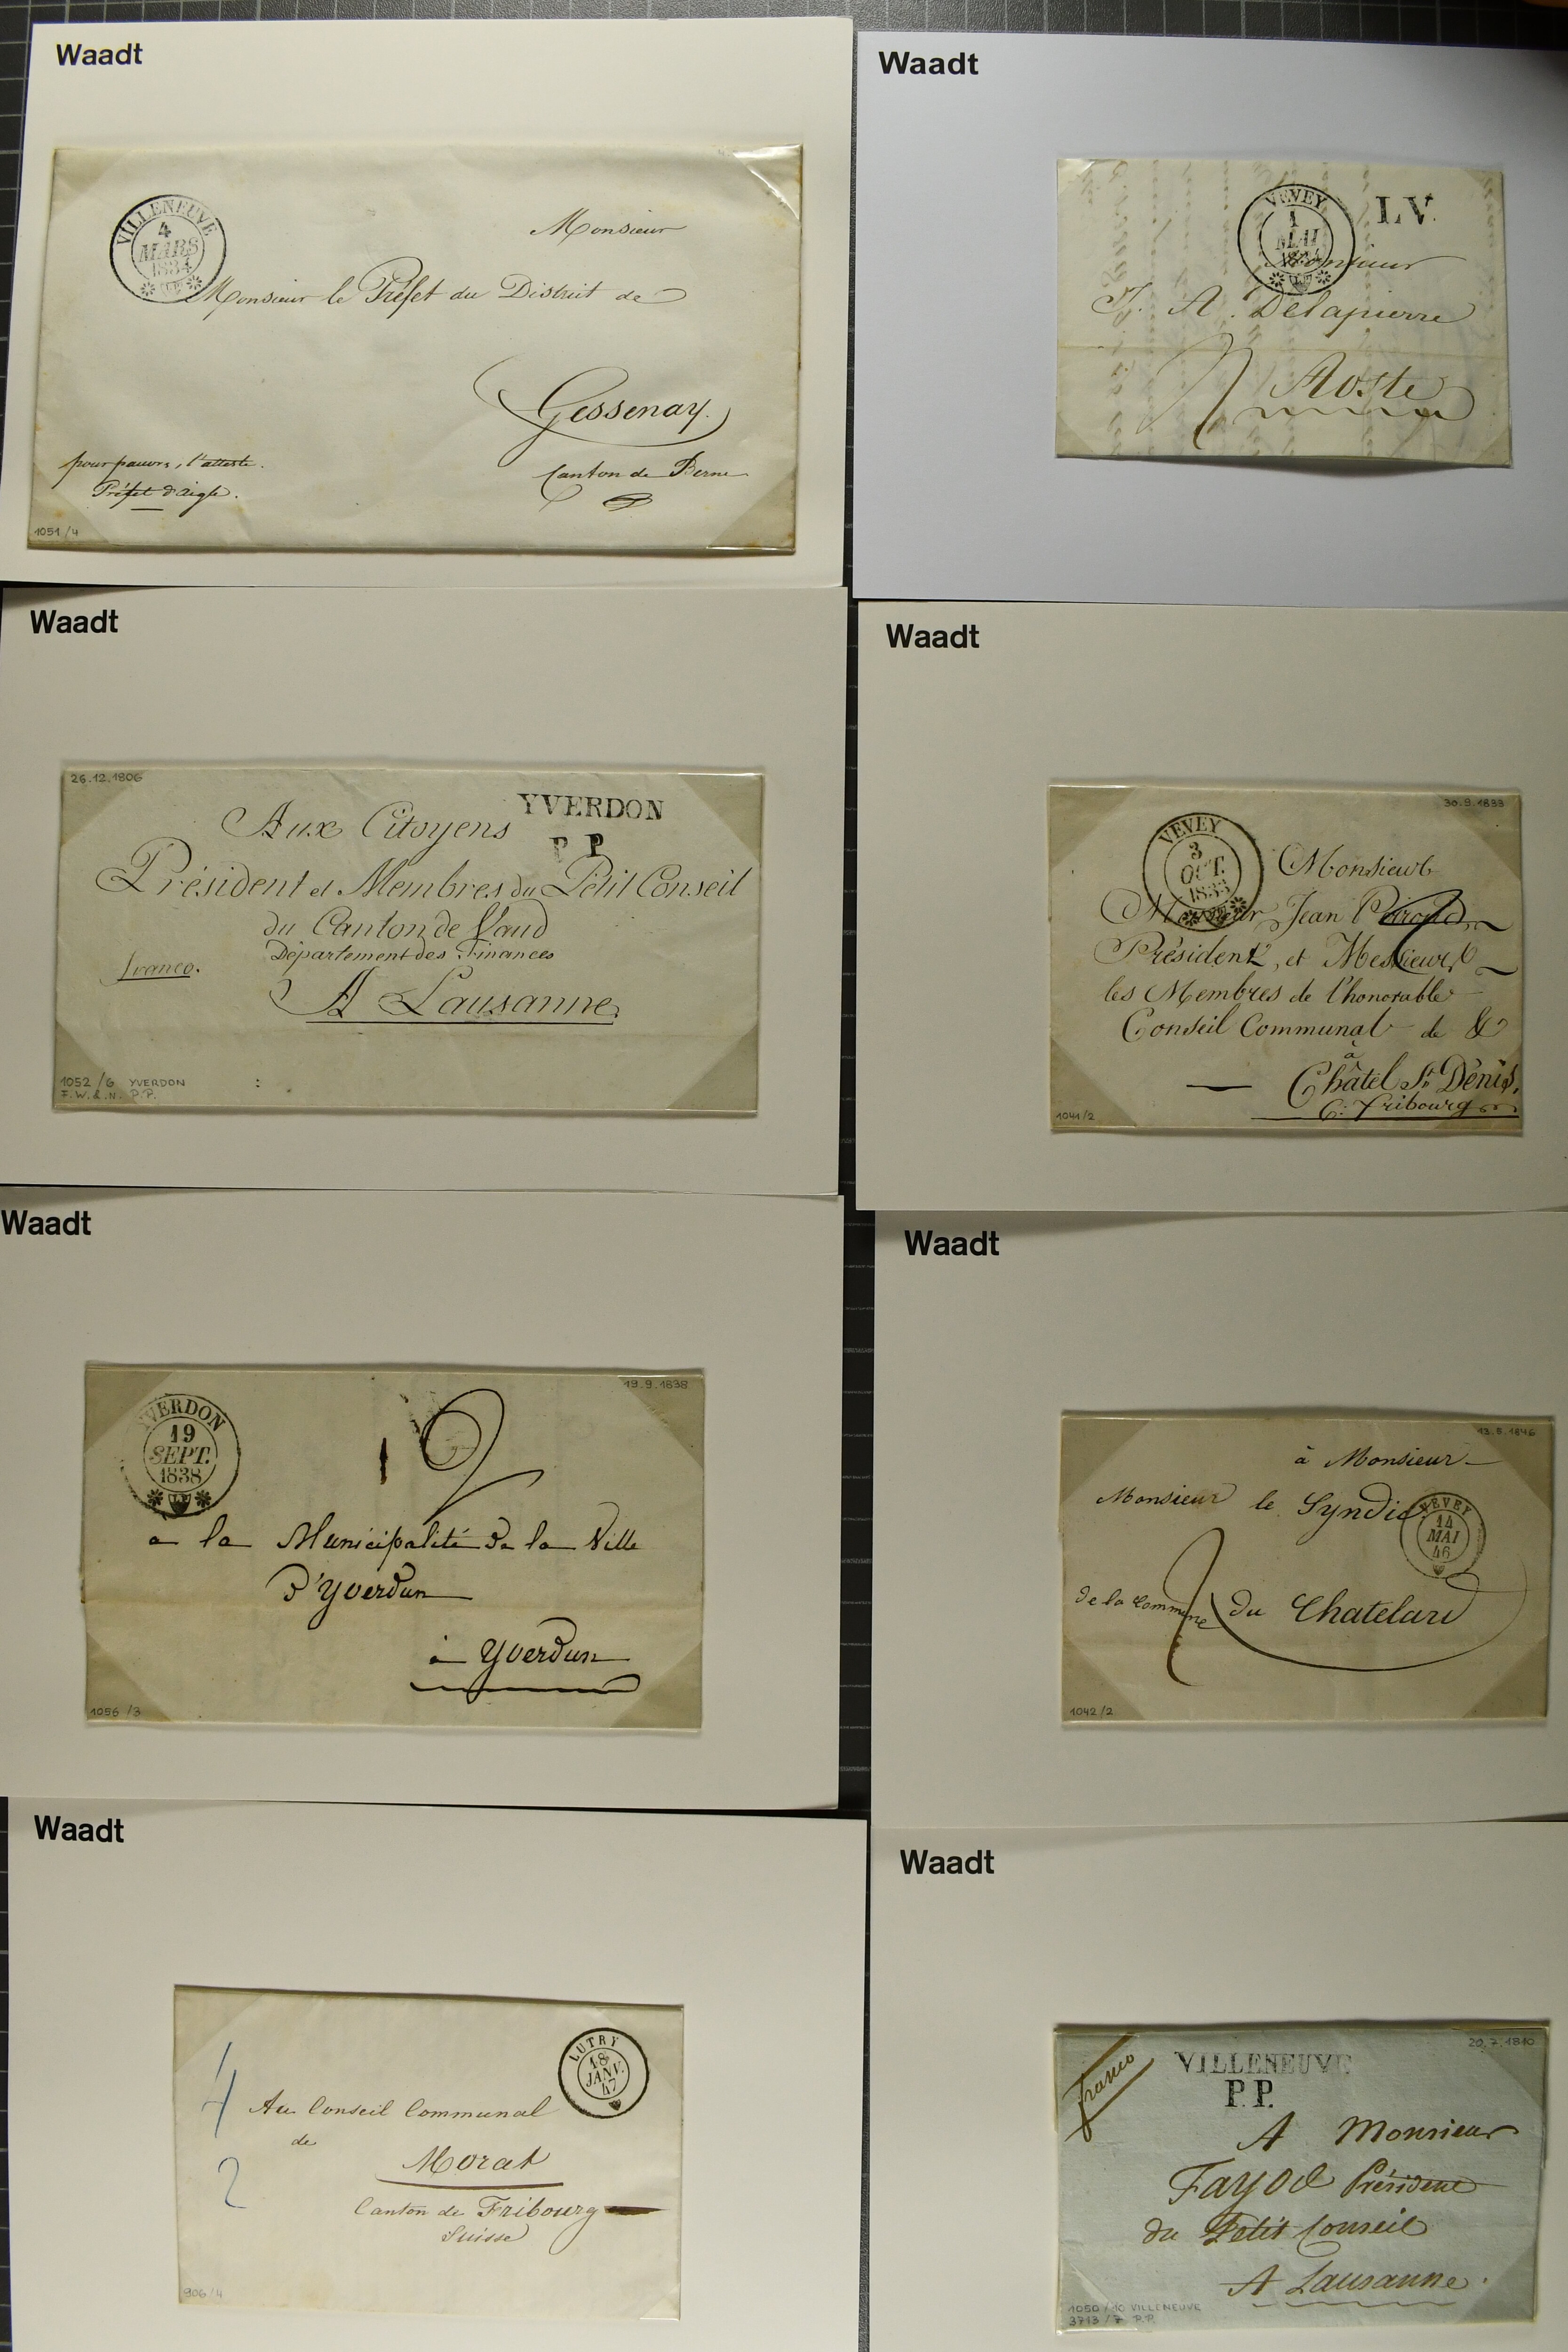 Waadt
VILLENEUVE
4
MARS
1834
LP
Monsieur
Monsieur le Préfet du District de
Gessenay.
Canton de Berne
pour pauvrs, l'atteste.
Préfet d'aigle.
1051/4
Waadt
VEVEY
1
MAI
L.V.
Monsieur
J. A. Delapierre
Aoste
Waadt
26.12.1806
YVERDON
P.P.
Aux Citoyens
Président et Membres du Petit Conseil
du Canton de Vaud
Département des Finances
franco.
A Lausanne
1052/6 YVERDON
F.W.&.N. P.P.
Waadt
30.9.1833
VEVEY
3
OCT.
1833
Monsieur
Monsieur Jean
Président, et Messieurs
les Membres de l'honorable
Conseil Communal de &
à
Châtel St Dénis.
C: Fribourg
1041/2
Waadt
19.9.1838
YVERDON
19
SEPT.
1838
a la Municipalité de la Ville
d'Yverdun
à Yverdun
1056/3
Waadt
à Monsieur
Monsieur le Syndic
VEVEY
14
MAI
46
de la Commune du Chatelard
1042/2
Waadt
LUTRY
18
JANV.
47
4
2
Au Conseil Communal
de
Morat
Canton de Fribourg
Suisse
906/4
Waadt
20.7.1810
franco
VILLENEUVE
P.P.
A Monsieur
Fayod Président
du Petit Conseil
A Lausanne.
1050/10 VILLENEUVE
3713/7 P.P.